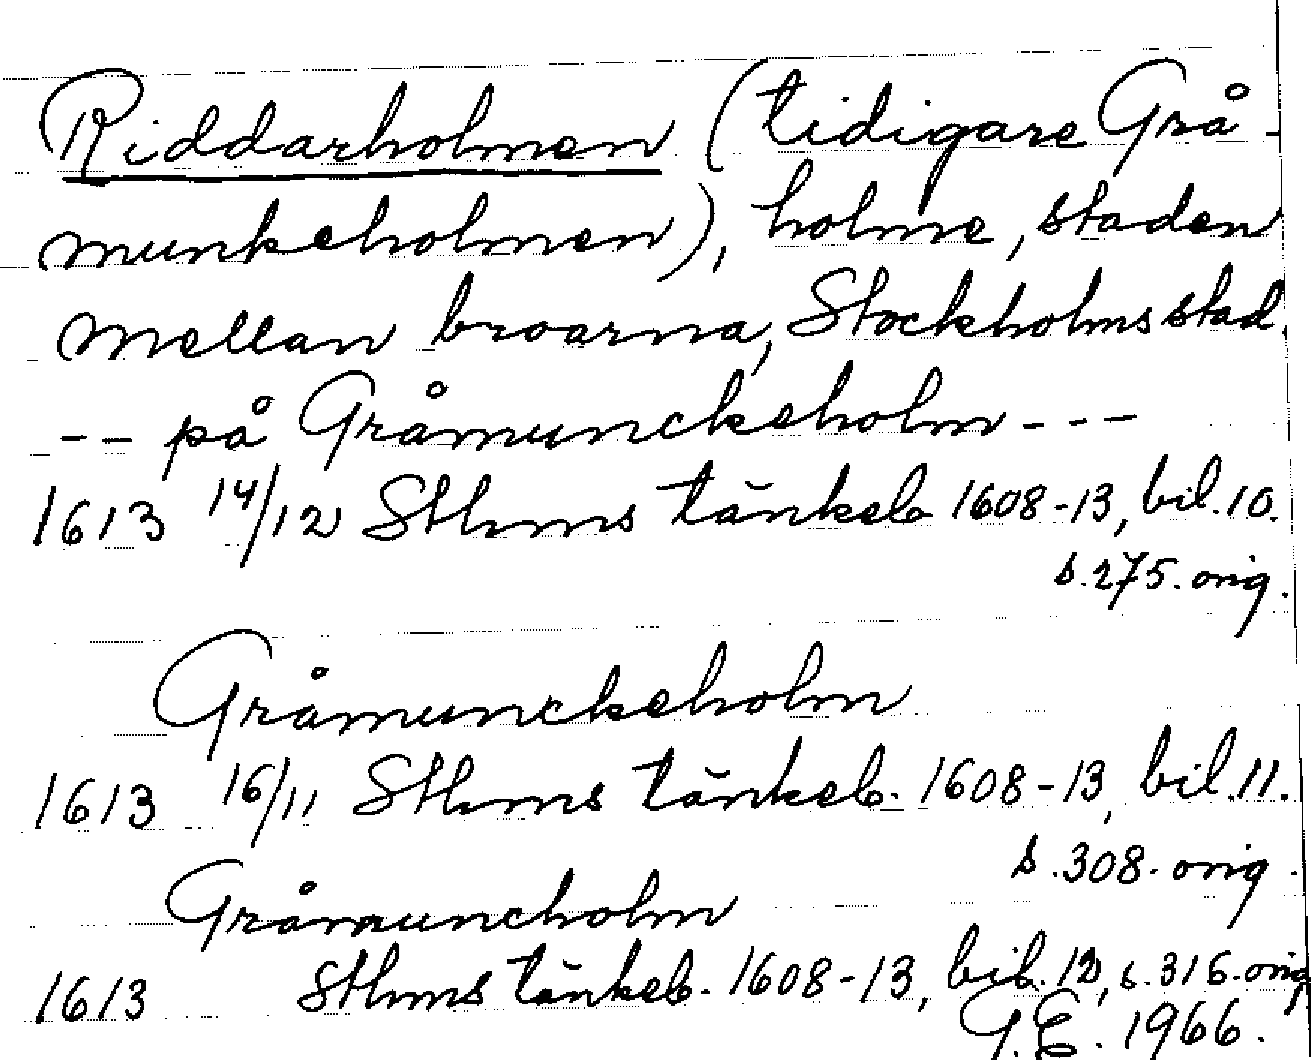 Riddarholmen (tidigare Grå-
munkeholmen), holme, staden
mellan broarna, Stockholms stad.
-- på Gråmunckeholm ---
1613 14/12 Sthms tänkeb. 1608-13, bil. 10.
s. 275. orig.
Gråmunckeholm
1613 16/11 Sthms tänkeb. 1608-13, bil. 11.
s. 308. orig.
Gråmuncholm
1613 Sthms tänkeb. 1608-13, bil. 12, s. 316. orig
G.E. 1966.